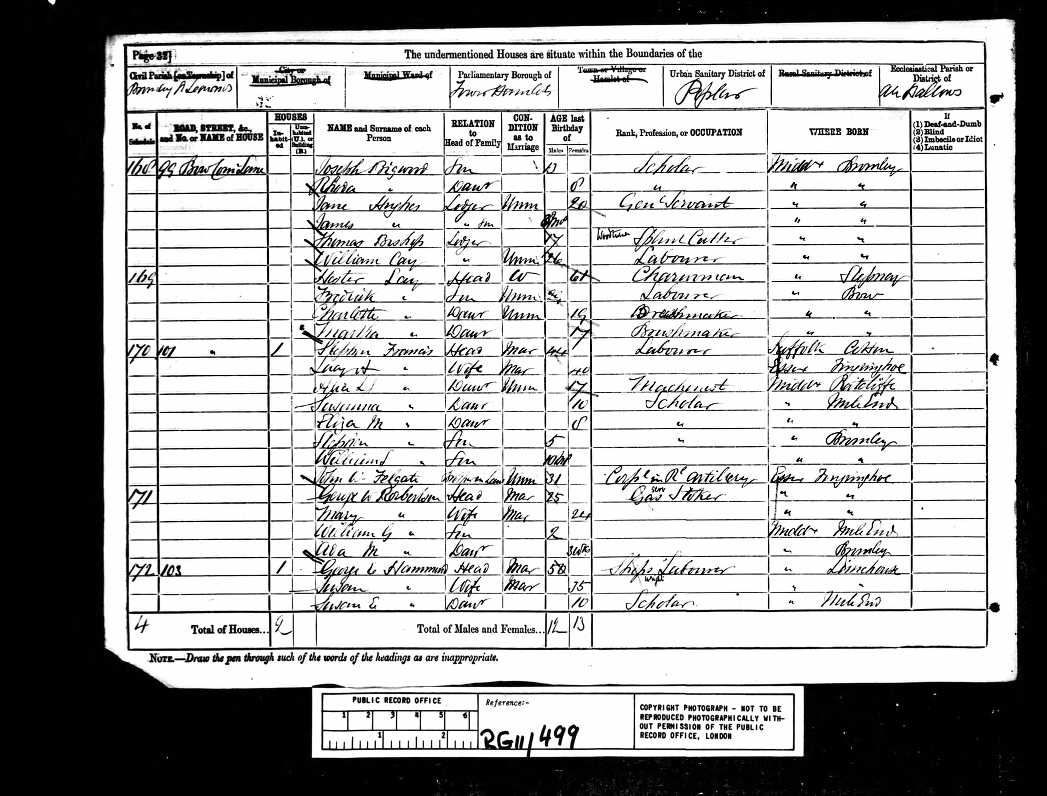 Page 32]
The undermentioned Houses are situate within the Boundaries of the
Civil Parish [or Township] of
City or Municipal Borough of
Municipal Ward of
Parliamentary Borough of
Town or Village or Hamlet of
Urban Sanitary District of
Rural Sanitary District of
Ecclesiastical Parish or District of
Bromley St Leonards
Tower Hamlets
Poplar
All Hallows
No. of Schedule
ROAD, STREET, &c., and No. or NAME of HOUSE
HOUSES
Inhabited
Uninhabited (U.), or Building (B.)
NAME and Surname of each Person
RELATION to Head of Family
CONDITION as to Marriage
AGE last Birthday of
Males
Females
Rank, Profession, or OCCUPATION
WHERE BORN
If
(1) Deaf-and-Dumb
(2) Blind
(3) Imbecile or Idiot
(4) Lunatic
168 99 Bow Com: Lane Joseph Son 13 Scholar Middx Bromley
Rhoda " Daur 8 " " "
Jane Hughes Lodger Unm 20 Genl Servant " "
James " " son " "
Thomas Bishop Lodger 17 Splint Cutter " "
William Cay " Unm 26 Labourer " "
169 Hester Head W 61 Charwoman " Stepney
Fredrick " Son Unm Labourer " Bow
Charlotte " Daur Unm 19 " "
Martha " Daur 17 Brushmaker " "
170 101 " 1 Stephen Francis Head Mar 44 Labourer Suffolk
Lucy A " Wife Mar 40 Essex Fingringhoe
" Daur Unm 17 Machinist Middx Ratcliffe
Susanna " Daur 10 Scholar " Mile End
Eliza M " Daur 8 " " "
Stephen " Son 5 " " Bromley
William " Son " "
John W Felgate Unm 31 Corpl in Rl artillery Essex Fingringhoe
171 George W Robertson Head Mar 25 Gas Stoker " "
Mary " Wife Mar 24 " "
William G " Son 2 Middx Mile End
Ada M " Daur " Bromley
172 103 1 George Hammond Head Mar 50 Ships Labourer " Limehouse
wright
Susan " Wife Mar 35 " "
Susan E " Daur 10 Scholar " Mile End
4 Total of Houses... 2 Total of Males and Females... 12 13
NOTE.—Draw the pen through such of the words of the headings as are inappropriate.
PUBLIC RECORD OFFICE
1 2 3 4 5 6
1 2
Reference:-
RG11/499
COPYRIGHT PHOTOGRAPH - NOT TO BE
REPRODUCED PHOTOGRAPHICALLY WITH-
OUT PERMISSION OF THE PUBLIC
RECORD OFFICE, LONDON